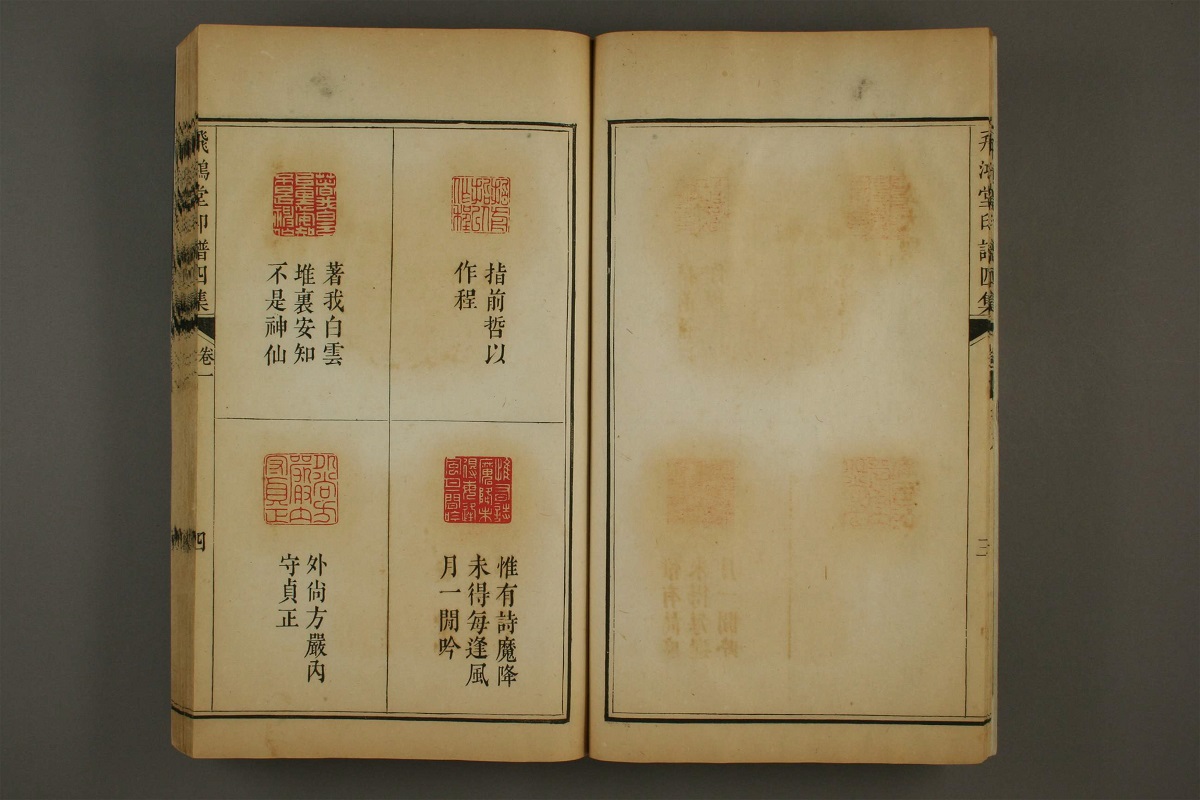 飛鴻堂印譜四集
三
指前哲以
作程
著我白雲
堆裏安知
不是神仙
惟有詩魔降
未得每逢風
月一閒吟
外尚方嚴內
守貞正
飛鴻堂印譜四集
卷一
四